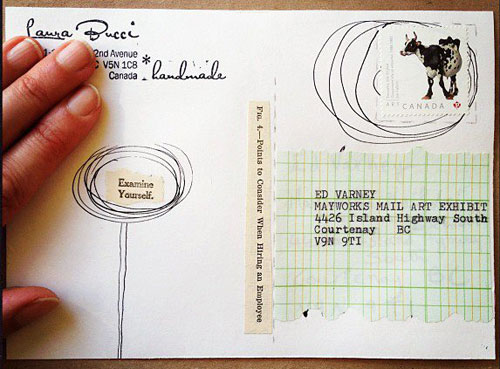 Laura Bucci
2nd Avenue
C V5N 1C8
Canada
*handmade
Examine
Yourself.
FIG. 4.—Points to Consider When Hiring an Employee
CANADA
P
ED VARNEY
MAYWORKS MAIL ART EXHIBIT
4426 Island Highway South
Courtenay BC
V9N 9TI